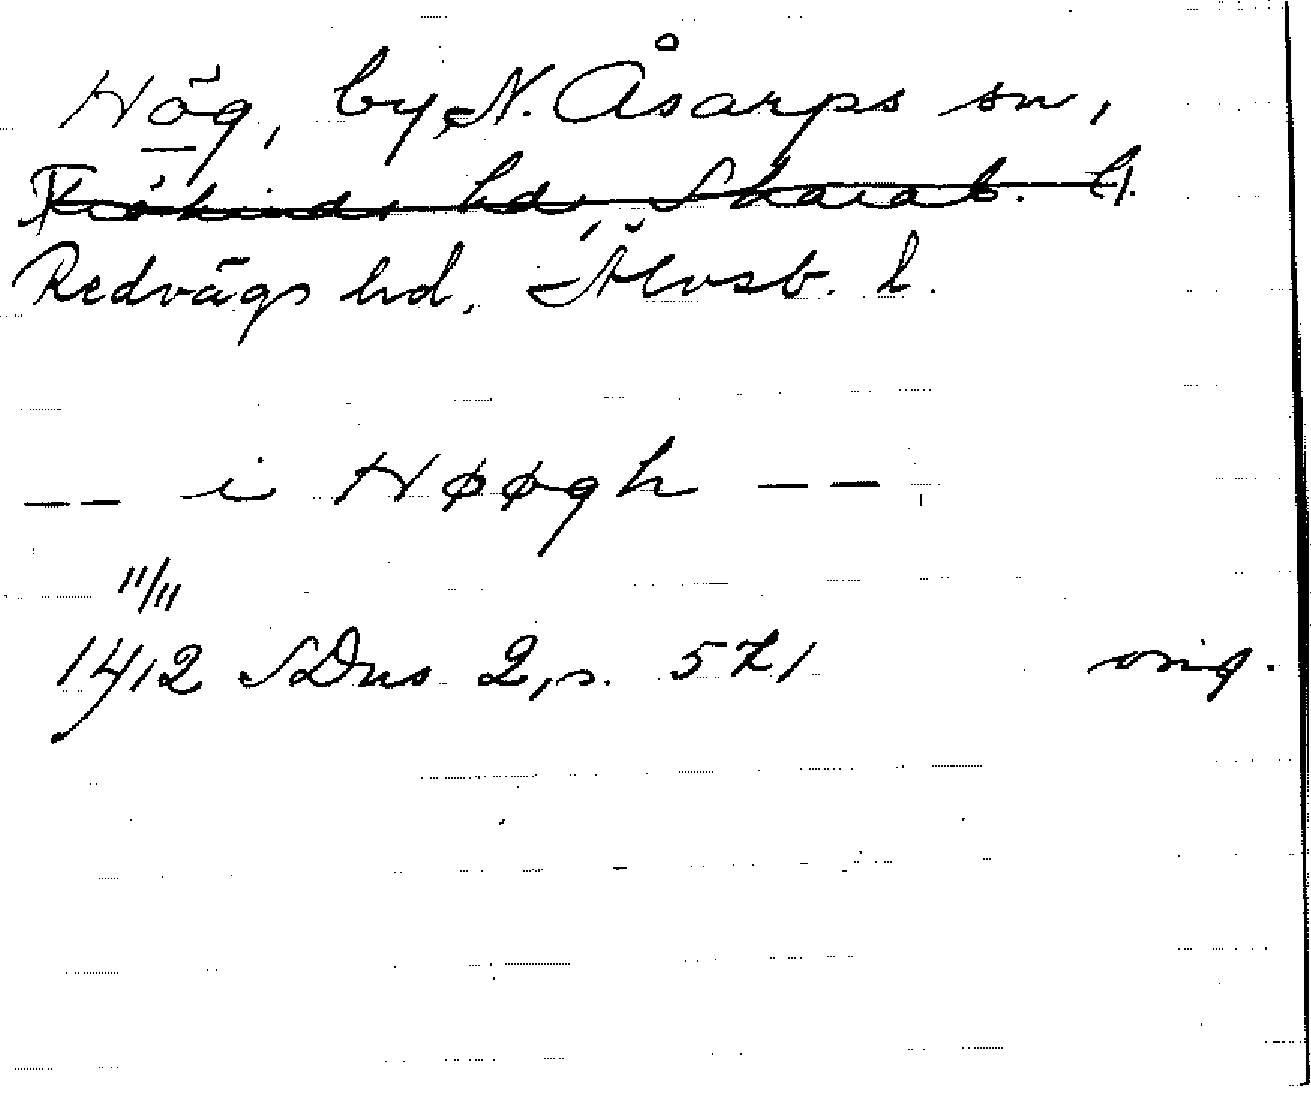 Hög, by, N. Åsarps sn,
Frökinds hd, Skarab. l.
Redvägs hd, Älvsb. l.
-- i Høøgh --
11/11
1412 SDns 2, s. 571 orig.